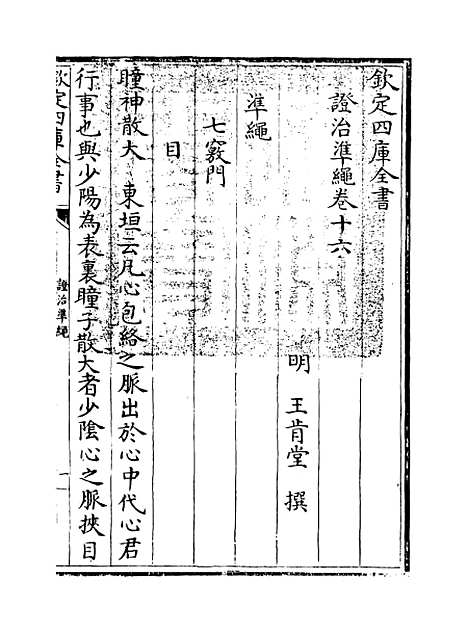 欽定四庫全書
證治準繩卷十六
明 王肯堂 撰
準繩
七竅門
目
瞳神散大 東垣云凡心包絡之脈出於心中代心君
行事也與少陽為表裏瞳子散大者少陰心之脈挾目
欽定四庫全書
證治準繩
一